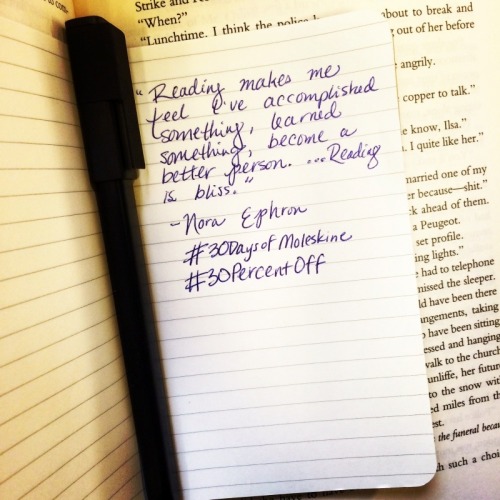 Strike and
"When?"
"Lunchtime. I think the police
about to break and
out of her before
angrily.
copper to talk."
know, Ilsa."
I quite like her."
married one of my
er because—shit."
ck ahead of them.
a Peugeot.
set profile.
ing lights."
had to telephone
nissed the sleeper.
ld have been there
ngements, taking
have been sitting
essed and hanging
walk to the church
unliffe, her futur
to the snow wit
ed miles from th
est.
the funeral becau
h such a choi
"Reading makes me
feel I've accomplished
something, learned
something, become a
better person. ...Reading
is bliss."
-Nora Ephron
#30DaysofMoleskine
#30PercentOff